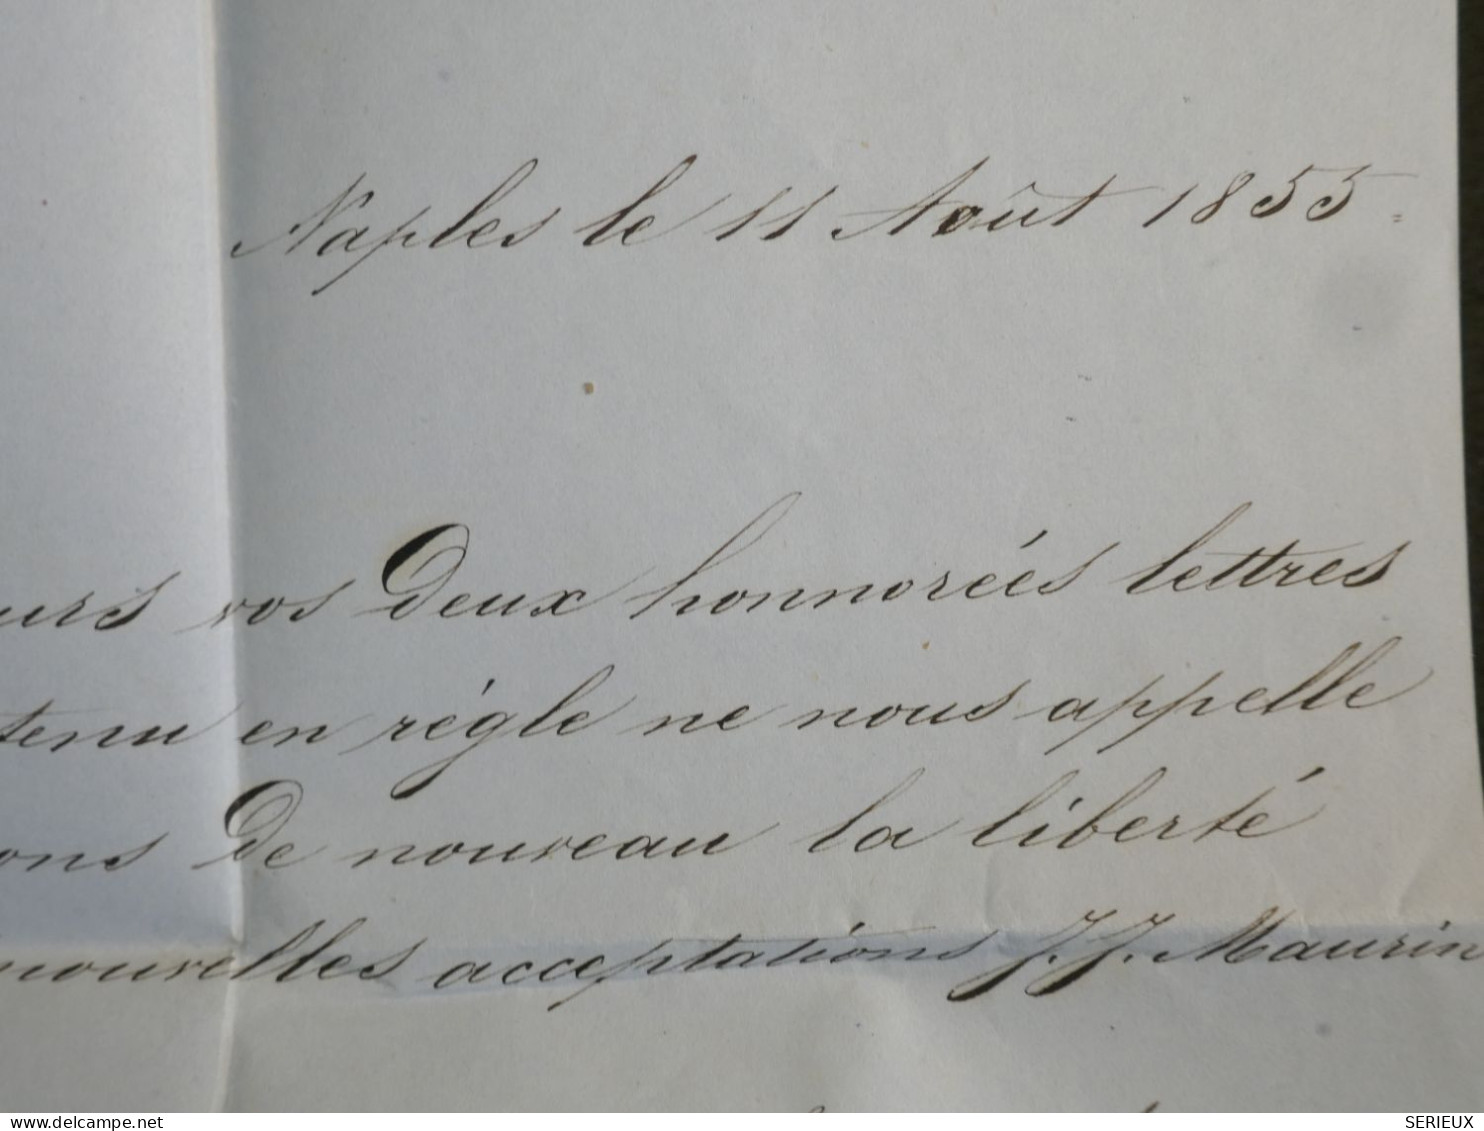 Naples le 11 Août 1855.
urs vos Deux honnorées lettres
tenu en règle ne nous appelle
ons De nouveau la liberté
nouvelles acceptations J. J. Maurin
delcampe.net
SERIEUX